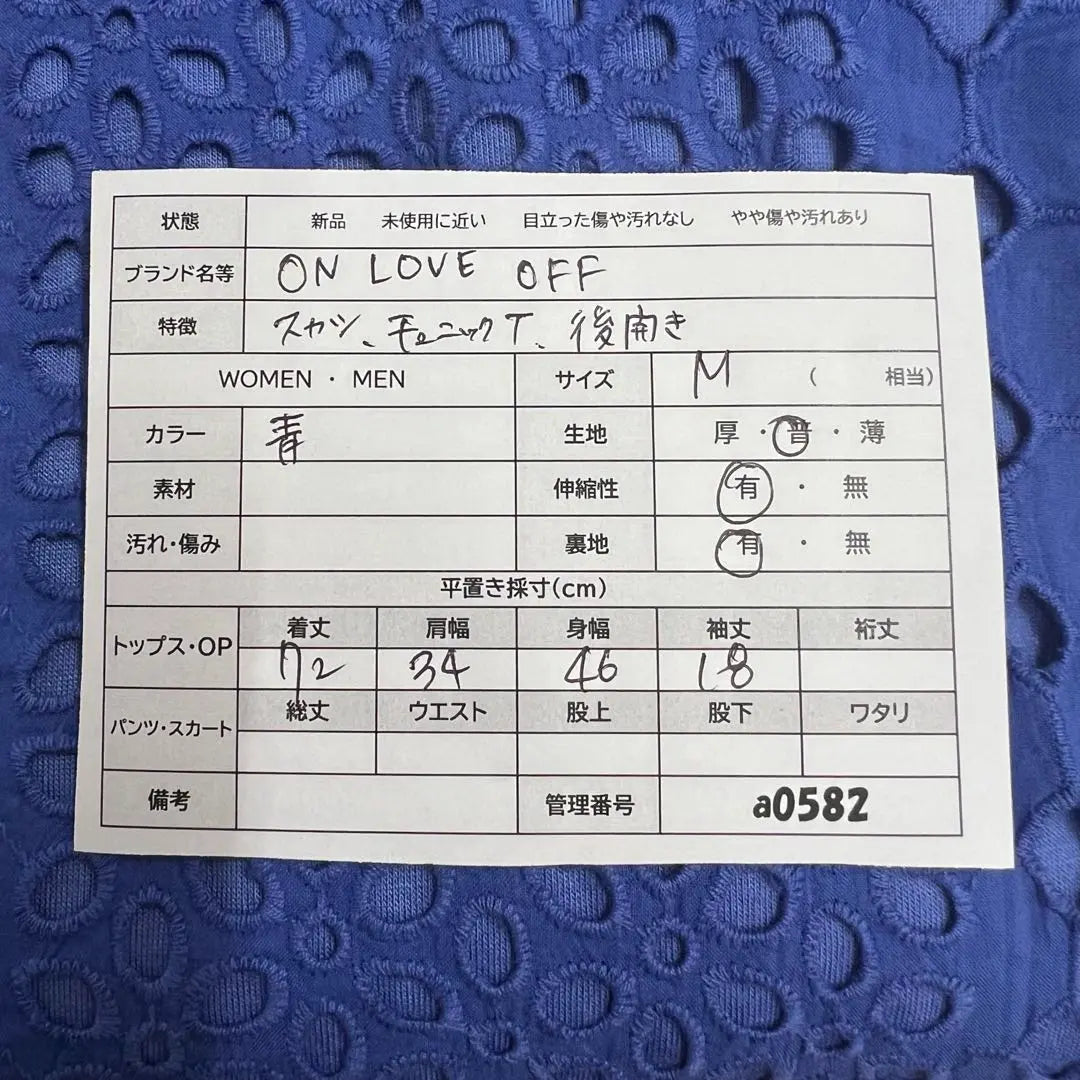 状態 新品 未使用に近い 目立った傷や汚れなし やや傷や汚れあり
ブランド名等 ON LOVE OFF
特徴 スカシ、チュニックT、後開き
WOMEN ・ MEN サイズ M ( 相当)
カラー 青 生地 厚・普・薄
素材 伸縮性 有 ・ 無
汚れ・傷み 裏地 有 ・ 無
平置き採寸(cm)
トップス・OP 着丈 肩幅 身幅 袖丈 裄丈
72 34 46 18
パンツ・スカート 総丈 ウエスト 股上 股下 ワタリ
備考 管理番号 a0582